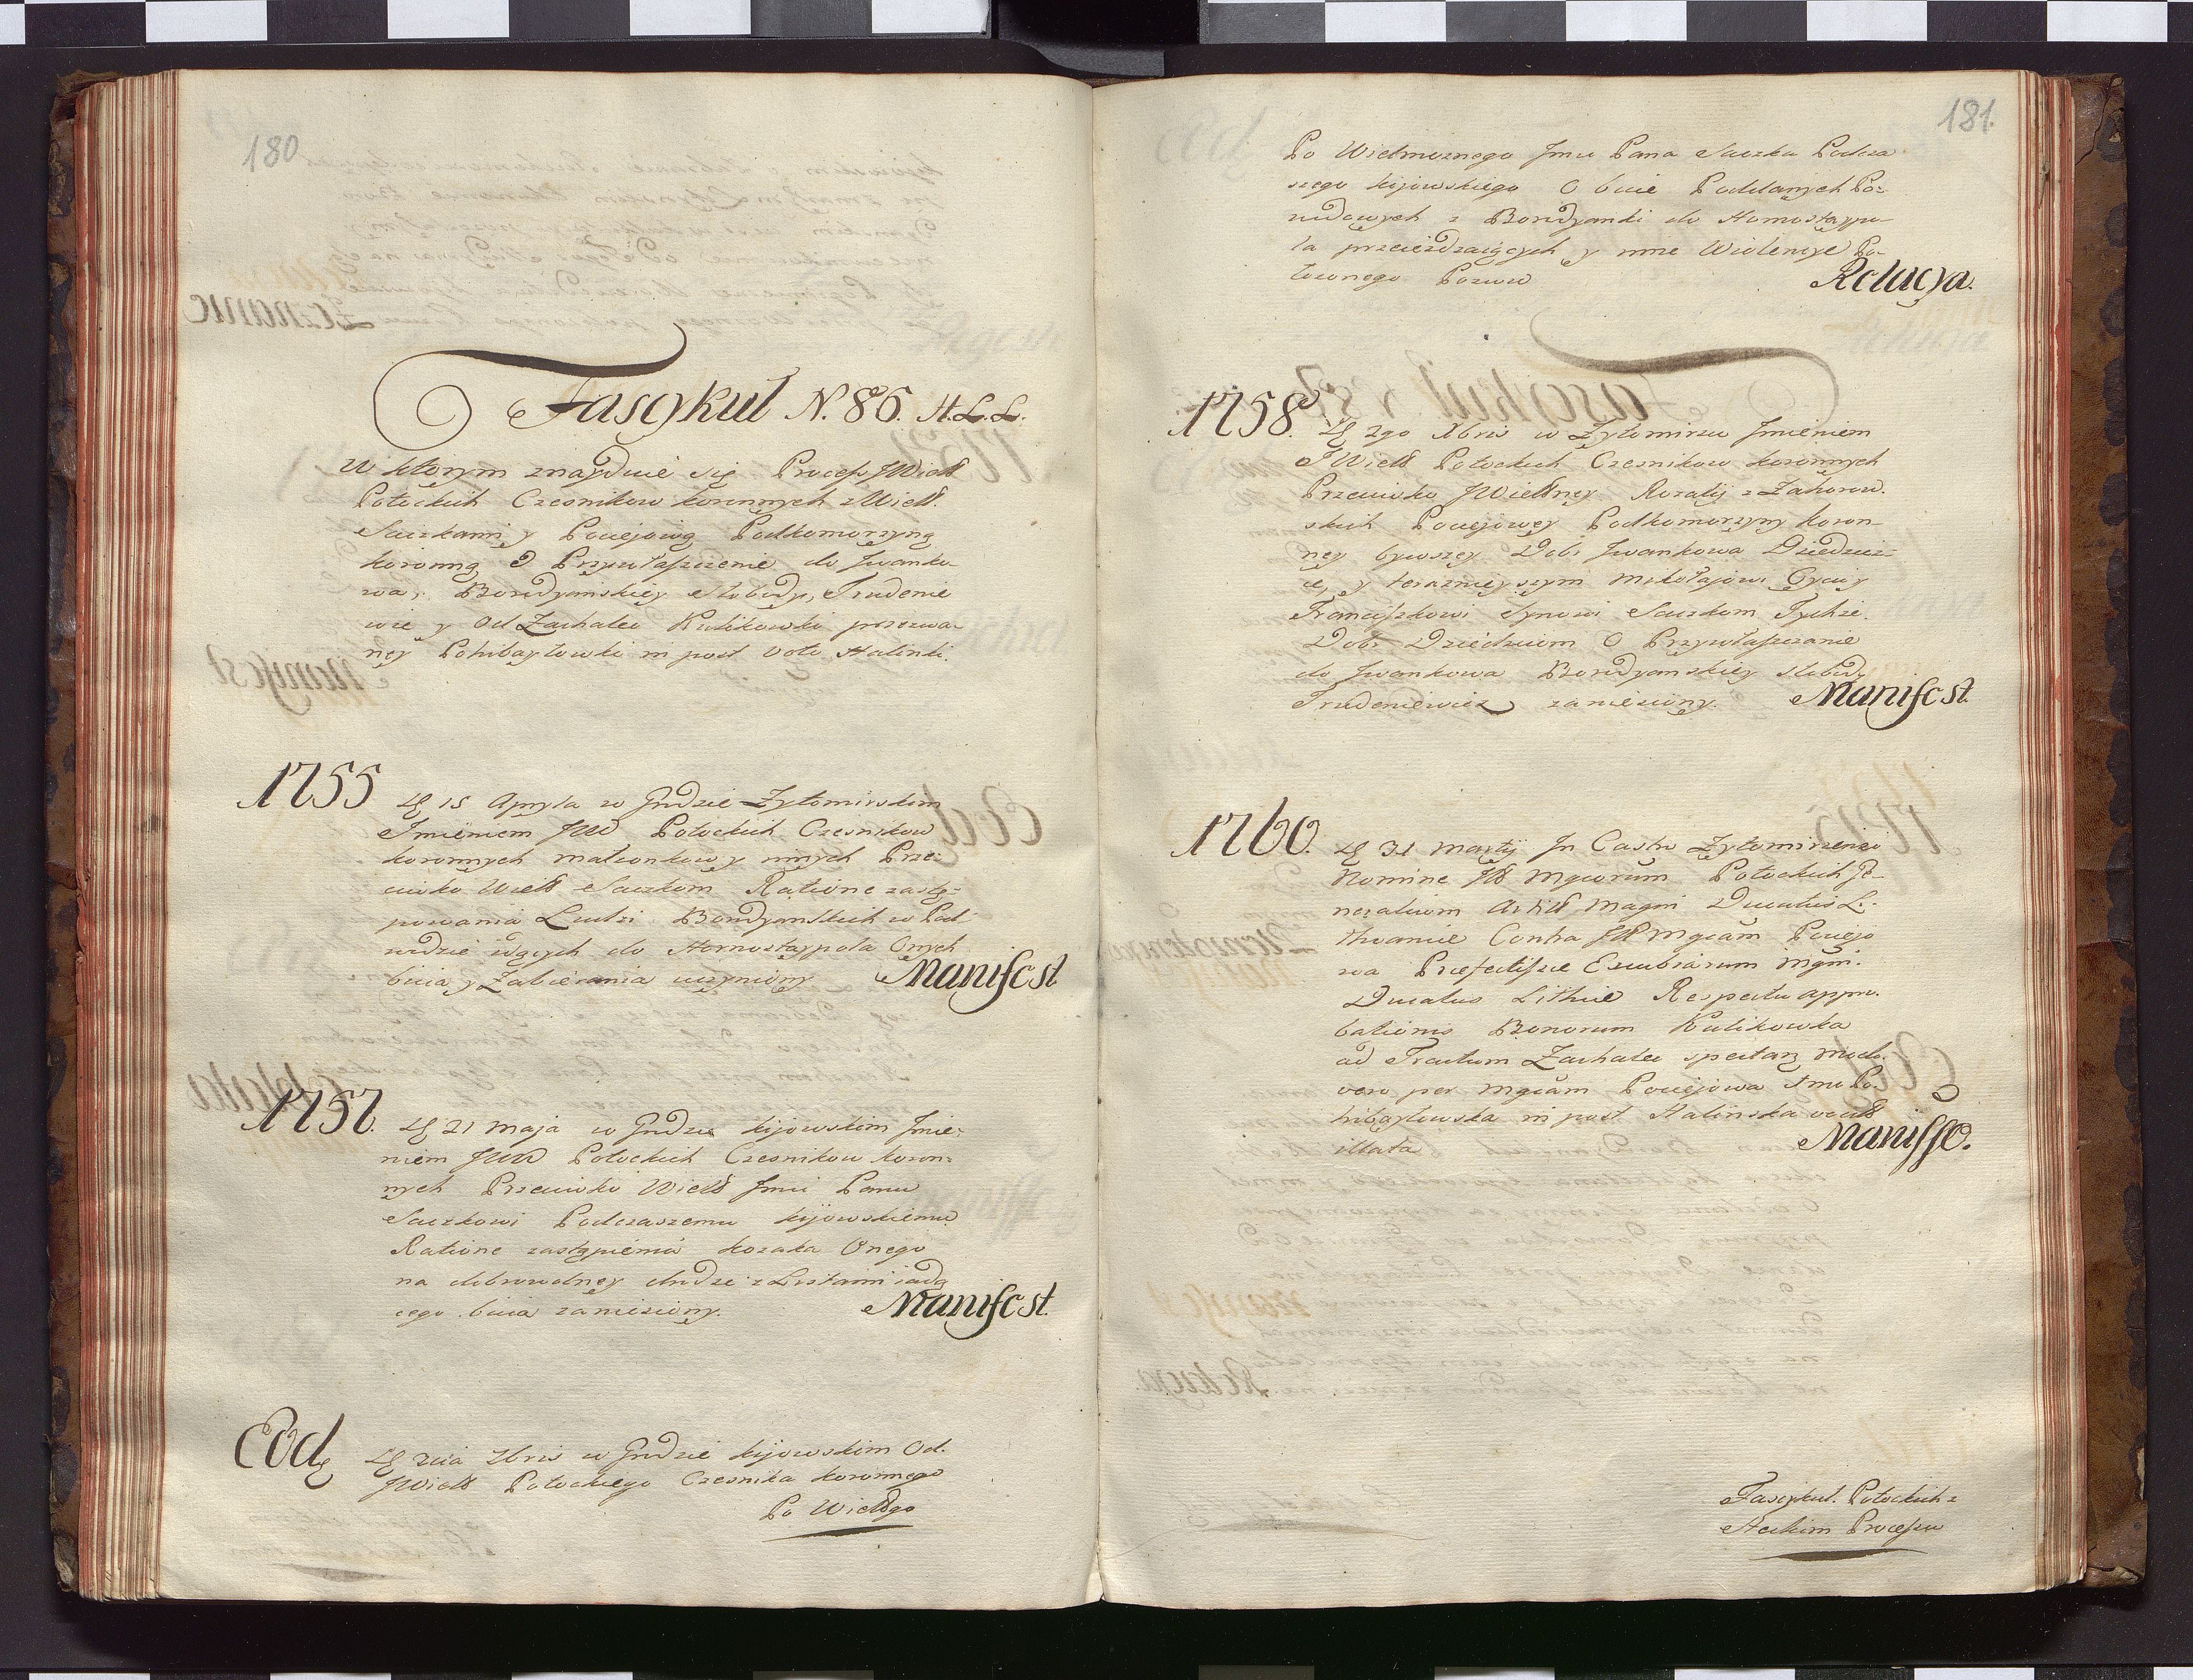 180
Fascykuł N. 86. H.L.L.
W ktorym znayduie się Process JWiell
Potockich Czesnikow koronnych z Wiell.
Saczkami y Pociejową Podkomorzyną
koronną O Przywłaszczenie do Iwanko-
wa, Borodyanskiey Słobody, Trudenie
wie y Od Zachalec Kulikowki przezwa-
ney Pohibayłowki m post voto Halinki.
1755 Dg 15 Apryla w Grodzie Zytomirskim
Imieniem JWW Potockich Czesnikow
koronnych małzonkow y innych Prze-
ciwko Wiell Saczkom Ratione zastę-
powania Ludzi Borodyanskich w Pod-
wodzie idących do Hornostaypola Onych
bicia y Zabierania uczyniony Manifest
1757. Dg 21 Maja w Grodzie kijowskim Imie-
niem JWW Potockich Czesnikow koron-
nych Przeciwko Wiell Jmci Panu
Saczkowi Podczaszemu kijowskiemu
Ratione zastąpienia kozaka Onego
na dobrowolney drodze z Listami iadą
cego bicia zaniesiony. Manifest.
Eod Dg 2cia Xbris w Grodzie kijowskim Od.
JWiell Potockiego Czesnika koronnego
Po Wiellgo
181.
Po Wielmoznego Jmci Pana Saczka Podcza
szego kijowskiego O bicie Poddanych Po-
wodowych z Borodyanki do Hornostaypo-
la przeiezdzaiących y inne Wiolencye Po-
łozonego Pozwu Relacya.
1758. Dg 2go Xbris w Zytomirzu Imieniem
JWiell Potockich Czesnikow koronnych
Przeciwko JWiellney Rozalij z Zahorow-
skich Pociejowey Podkomorzyny koron-
ney bywszey Dobr Iwankowa Dziedzicz-
ce, y teraznieyszym Mikołajowi Oycu y
Franciszkowi Synowi Saczkom Tychze
Dobr Dziedzicom O Przywłaszczanie
do Iwankowa Borodyanskiey Słobody
Trudeniewicz zaniesiony. Manifest.
1760. Dg 31 Martij In Castro Zytomiriensi
Nomine JW Mgcorum Potockich Ge-
neralium Artill Magni Ducatus L-
thvaniæ Contra JW Mgcam Pociejo
wa Præfectissæ Excubiarum Mgni.
Ducatus Lithuæ Respectu appro-
bationis Bonorum Kulikowka
ad Tractum Zachalec spectan modo
vero per Mgcam Pociejowa Imo Po-
hibayłowska in post Halinska vocit
illata Manissto.
Fascykuł. Potockich z
Aekim Processu